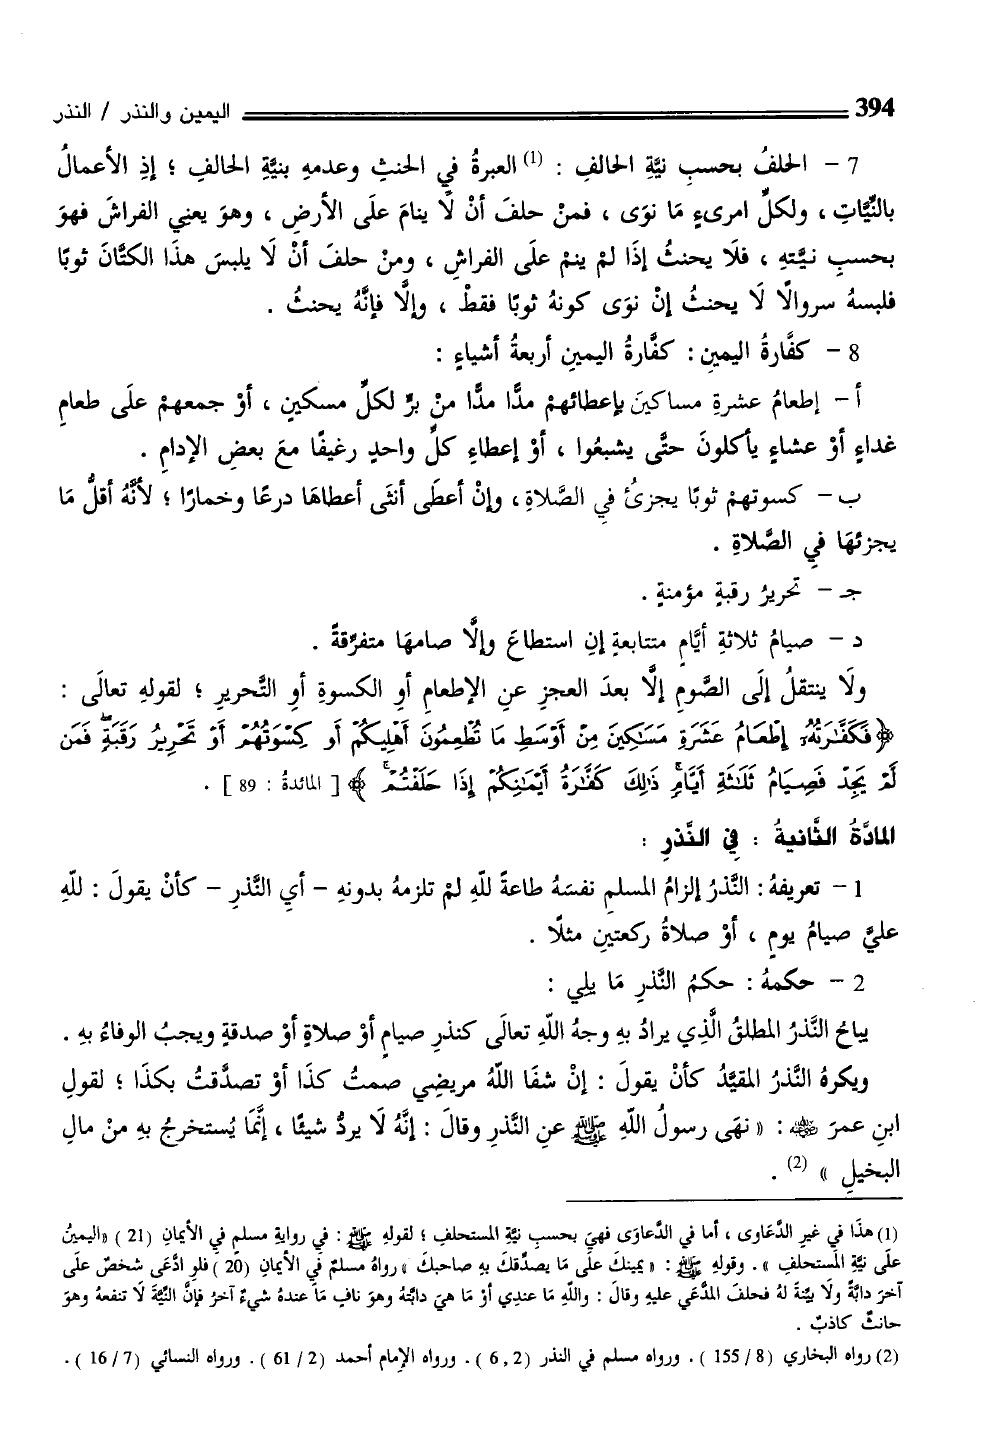 394 اليمين والنذر / النذر
7 – الحلفُ بحسبِ نيَّةِ الحالفِ : (1) العبرةُ في الحنثِ وعدمهِ بنيَّةِ الحالفِ ؛ إذِ الأعمالُ
بالنِّيَّاتِ ، ولكلِّ امرىءٍ مَا نوَى ، فمنْ حلفَ أنْ لَّا ينامَ علَى الأرضِ ، وهوَ يعنِي الفراشَ فهوَ
بحسبِ نيَّتهِ ، فلَا يحنثُ إذَا لمْ ينمْ علَى الفراشِ ، ومنْ حلفَ أنْ لَا يلبسَ هذَا الكتَّانَ ثوبًا
فلبسهُ سروالًا لَا يحنثُ إنْ نوَى كونهُ ثوبًا فقطْ ، وإلَّا فإنَّهُ يحنثُ .
8 – كفَّارةُ اليمينِ : كفَّارةُ اليمينِ أربعةُ أشياءٍ :
أ – إطعامُ عشرةِ مساكينَ بإعطائهمْ مدًّا مدًّا منْ برٍّ لكلِّ مسكينٍ ، أوْ جمعهمْ علَى طعامِ
غداءٍ أوْ عشاءٍ يأكلونَ حتَّى يشبعُوا ، أوْ إعطاءِ كلِّ واحدٍ رغيفًا معَ بعضِ الإدامِ .
ب – كسوتهمْ ثوبًا يجزئُ في الصَّلاةِ ، وإنْ أعطَى أنثَى أعطاهَا درعًا وخمارًا ؛ لأنَّهُ أقلُّ مَا
يجزئهَا في الصَّلاةِ .
جـ – تحريرُ رقبةٍ مؤمنةٍ .
د – صيامُ ثلاثةِ أيَّامٍ متتابعةٍ إنِ استطاعَ وإلَّا صامهَا متفرِّقةً .
ولَا ينتقلُ إلَى الصَّومِ إلَّا بعدَ العجزِ عنِ الإطعامِ أوِ الكسوةِ أوِ التَّحريرِ ؛ لقولهِ تعالَى :
﴿فَكَفَّٰرَتُهُۥٓ إِطۡعَامُ عَشَرَةِ مَسَٰكِينَ مِنۡ أَوۡسَطِ مَا تُطۡعِمُونَ أَهۡلِيكُمۡ أَوۡ كِسۡوَتُهُمۡ أَوۡ تَحۡرِيرُ رَقَبَةٖۖ فَمَن
لَّمۡ يَجِدۡ فَصِيَامُ ثَلَٰثَةِ أَيَّامٖۚ ذَٰلِكَ كَفَّٰرَةُ أَيۡمَٰنِكُمۡ إِذَا حَلَفۡتُمۡۚ﴾ [ المائدةُ : 89 ] .
المادَّةُ الثَّانيةُ : فِي النَّذرِ :
1 – تعريفهُ : النَّذرُ إلزامُ المسلمِ نفسَهُ طاعةً للّهِ لمْ تلزمهُ بدونهِ – أيِ النَّذرِ – كأنْ يقولَ : للّهِ
عليَّ صيامُ يومٍ ، أوْ صلاةُ ركعتينِ مثلًا .
2 – حكمهُ : حكمُ النَّذرِ مَا يلِي :
يباحُ النَّذرُ المطلقُ الَّذِي يرادُ بهِ وجهُ اللّهِ تعالَى كنذرِ صيامٍ أوْ صلاةٍ أوْ صدقةٍ ويجبُ الوفاءُ بهِ .
ويكرهُ النَّذرُ المقيَّدُ كأنْ يقولَ : إنْ شفَا اللّهُ مريضِي صمتُ كذَا أوْ تصدَّقتُ بكذَا ؛ لقولِ
ابنِ عمرَ رضي الله عنه : « نهَى رسولُ اللّهِ ﷺ عنِ النَّذرِ وقالَ : إنَّهُ لَا يردُّ شيئًا ، إنَّمَا يُستخرجُ بهِ منْ مالِ
البخيلِ » (2) .
(1) هذَا في غيرِ الدَّعاوى ، أما في الدَّعاوَى فهيَ بحسبِ نيَّةِ المستحلفِ ؛ لقولهِ ﷺ : في روايةِ مسلمٍ في الأيمانِ (21) «اليمينُ
علَى نيَّةِ المستحلفِ » . وقولهِ ﷺ : « يمينكَ علَى مَا يصدِّقكَ بهِ صاحبكَ » رواهُ مسلمٌ في الأيمانِ (20) فلوِ ادَّعَى شخصٌ علَى
آخرَ دابَّةً ولَا بيّنةَ لهُ فحلفَ المدَّعَي عليهِ وقالَ : واللّهِ مَا عندِي أوْ مَا هيَ دابَّتهُ وهوَ نافٍ مَا عندهُ شيءٌ آخرُ فإنَّ النِّيَّةَ لَا تنفعهُ وهوَ
حانثٌ كاذبٌ .
(2) رواه البخاري (8 / 155) . ورواه مسلم في النذر (2 , 6) . ورواه الإمام أحمد (2 / 61) . ورواه النسائي (7 / 16) .